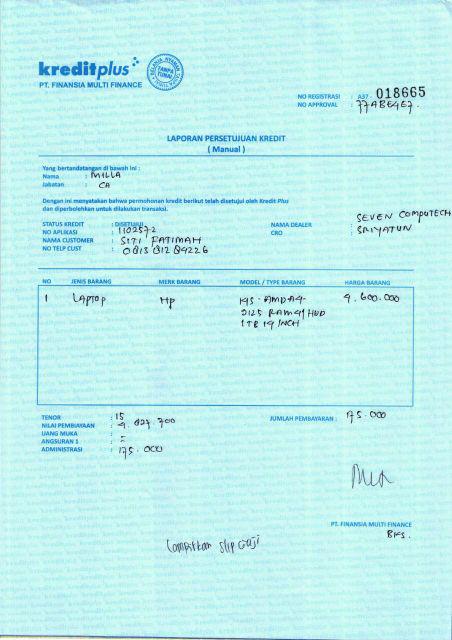 kreditplus
PT. FINANSIA MULTI FINANCE
BELANJA NYAMAN
TANPA TUNAI
NO REGISTRASI : A37 - 018665
NO APPROVAL : 77ABE4E7.
LAPORAN PERSETUJUAN KREDIT
( Manual )
Yang bertandatangan di bawah ini :
Nama : MILLA
Jabatan : CA
Dengan ini menyatakan bahwa permohonan kredit berikut telah disetujui oleh Kredit Plus
dan diperbolehkan untuk dilakukan transaksi.
STATUS KREDIT : DISETUJUI
NO APLIKASI : 1102572
NAMA CUSTOMER : SITI FATIMAH
NO TELP CUST : 081381284226
NAMA DEALER : SEVEN COMPUTECH
CRO : SRIYATUN
NO JENIS BARANG MERK BARANG MODEL / TYPE BARANG HARGA BARANG
1 LAPTOP HP 14S - AMDA4- 4.600.000
9125 RAM4/HDD
1TB 14 INCH
TENOR : 15
NILAI PEMBIAYAAN : 4.827.700
UANG MUKA : -
ANGSURAN 1 : -
ADMINISTRASI : 175.000
JUMLAH PEMBAYARAN : 175.000
PT. FINANSIA MULTI FINANCE
BKS.
Lampirkan slip Gaji